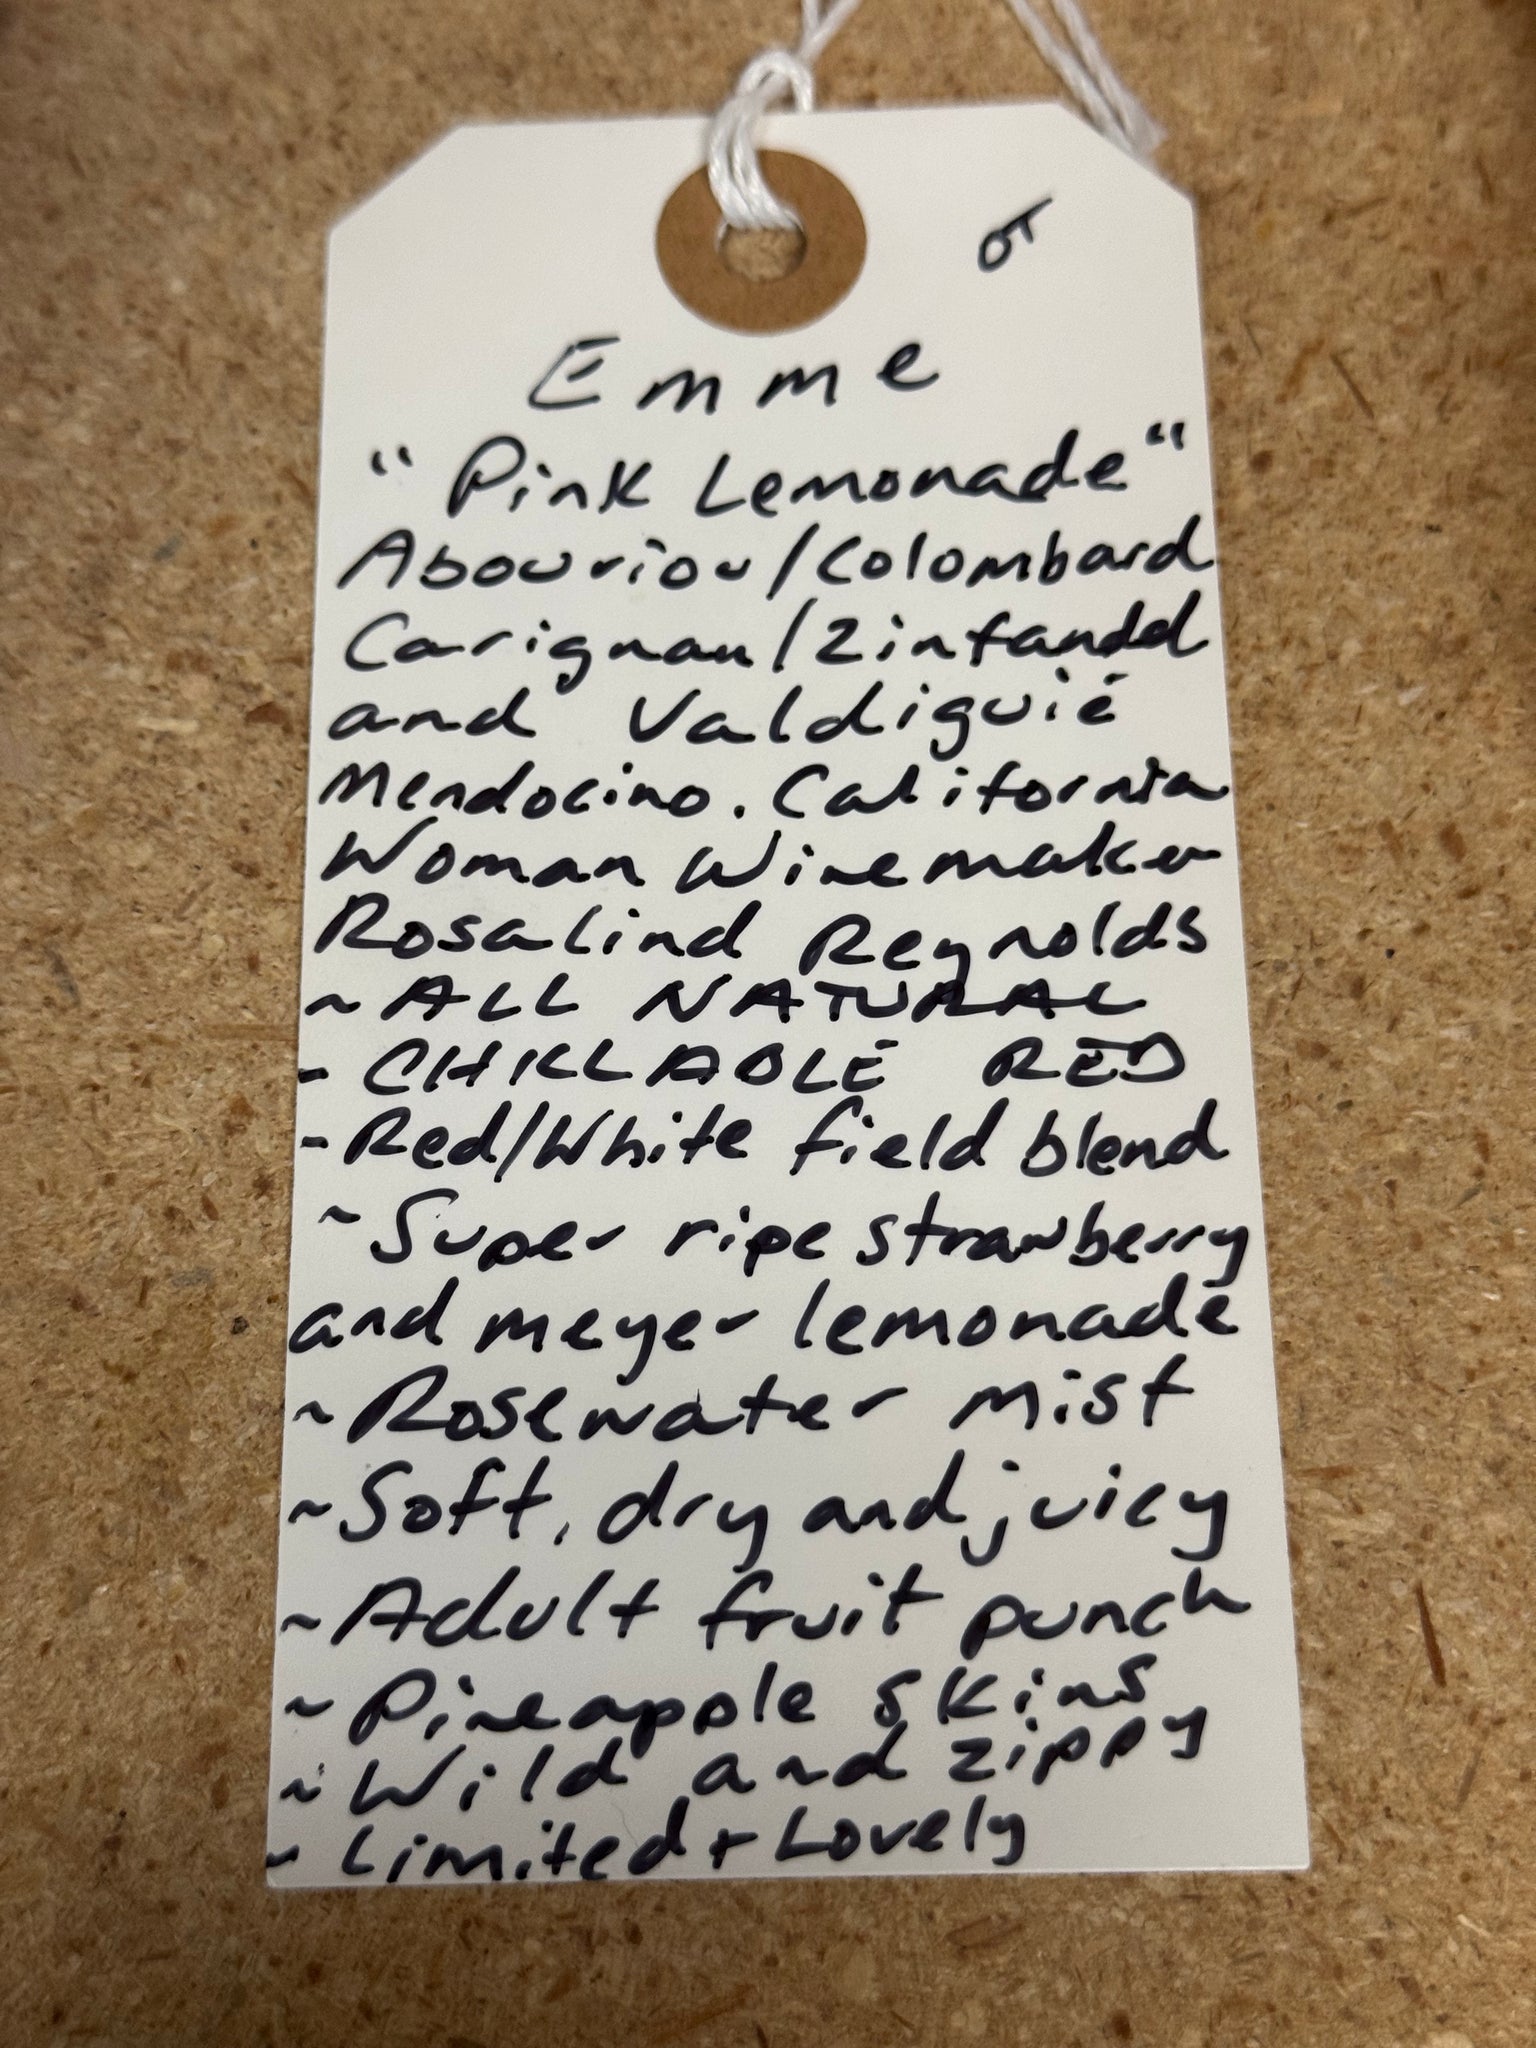 Emme
"Pink Lemonade"
Abouriou/Colombard
Carignan/Zinfandel
and Valdiguié
Mendocino. California
Woman Winemaker
Rosalind Reynolds
~ ALL NATURAL
- CHILLABLE RED
- Red/White field blend
~ Super ripe strawberry
and meyer lemonade
~ Rosewater mist
~ Soft, dry and juicy
~ Adult fruit punch
~ Pineapple skins
~ Wild and zippy
- Limited + Lovely